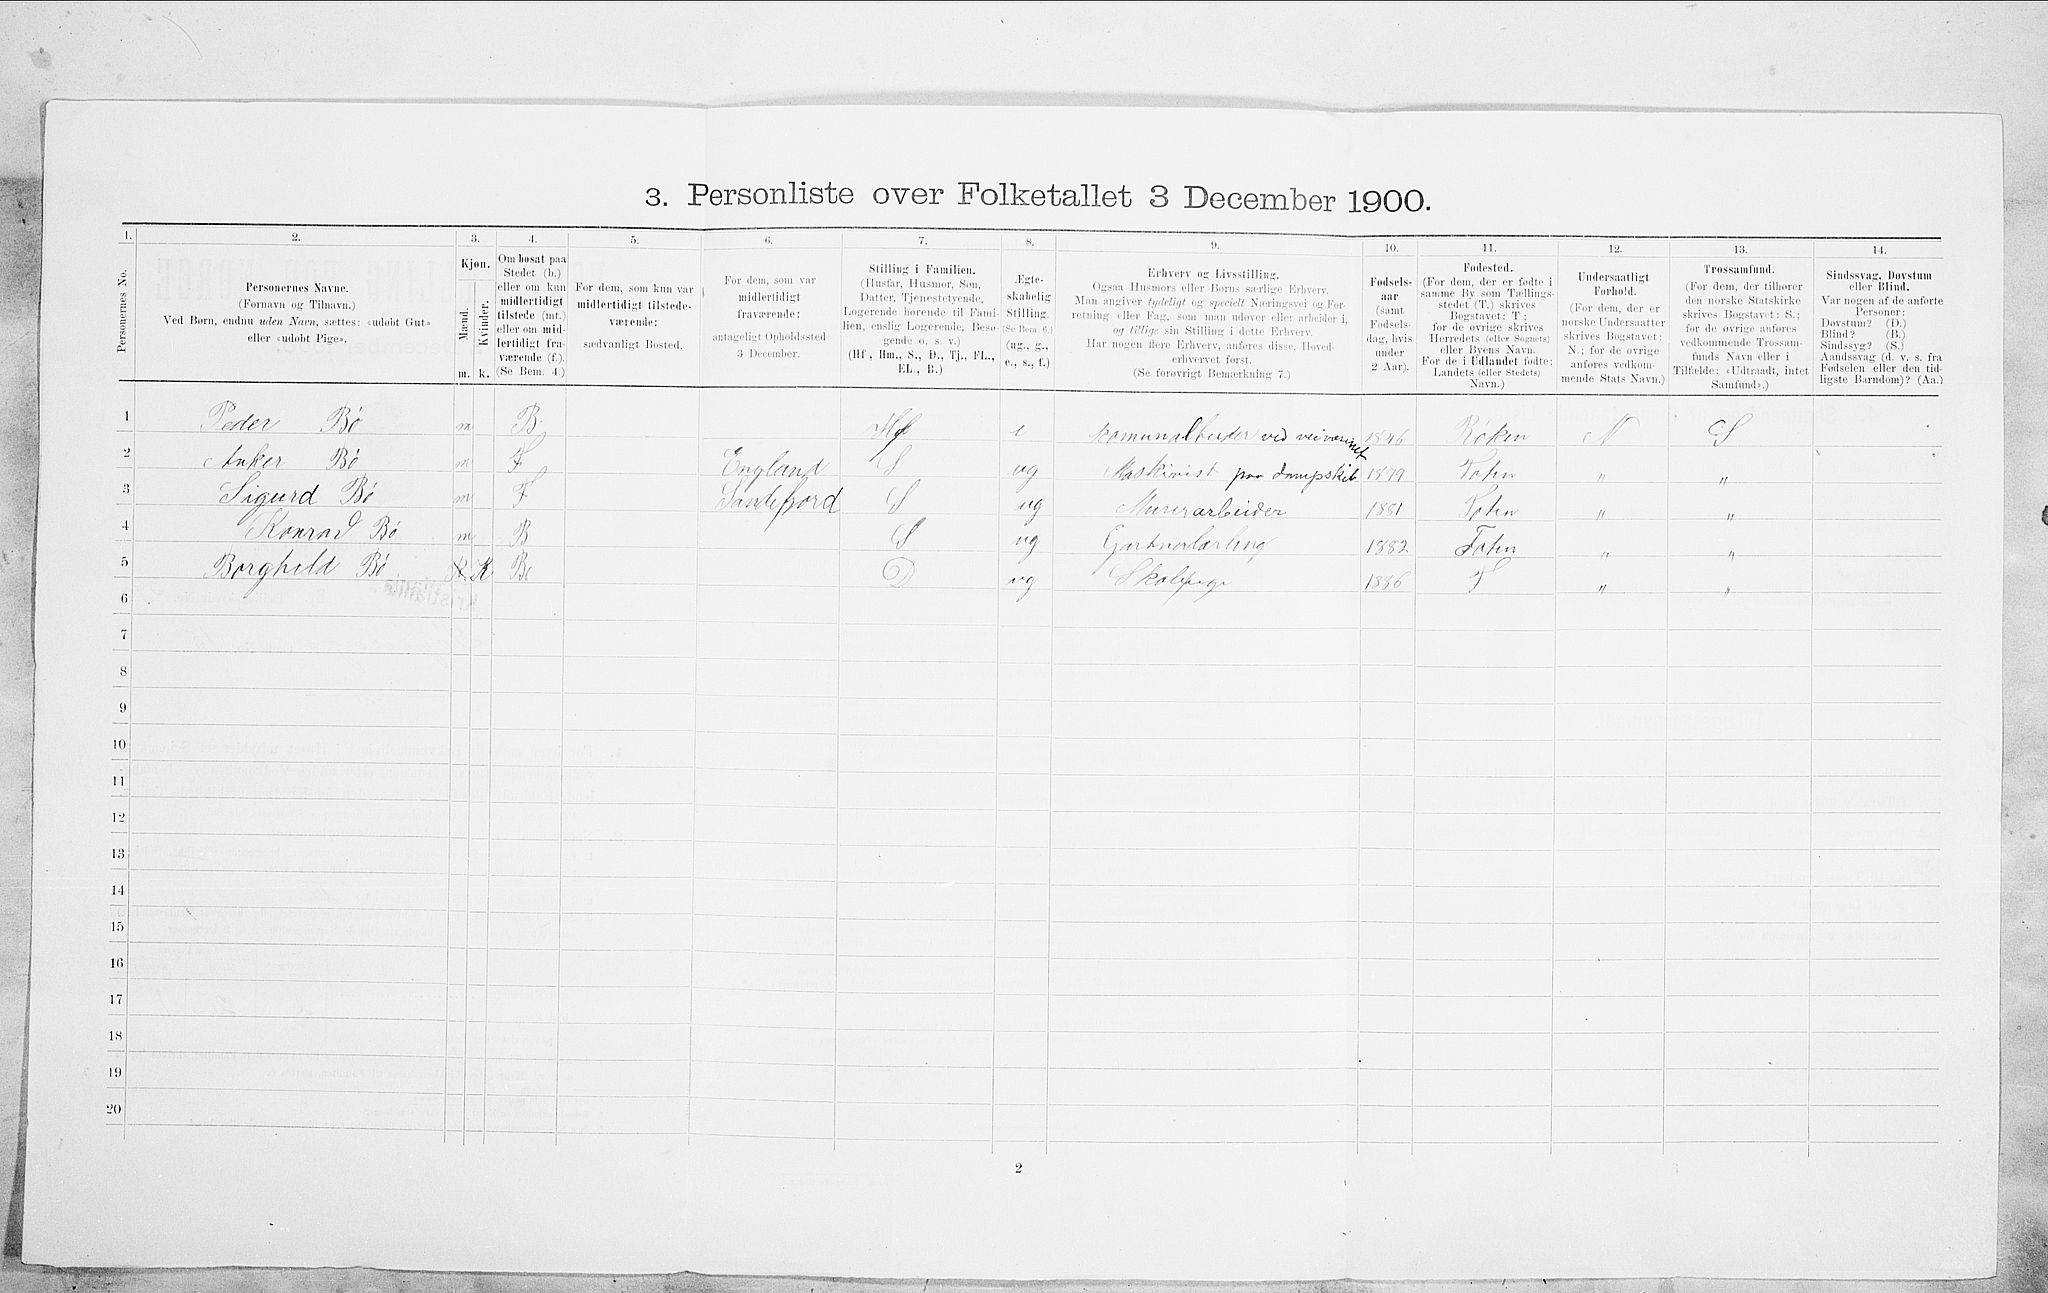 3. Personliste over Folketallet 3 December 1900.
1. 2. 3. 4. 5. 6. 7. 8. 9. 10. 11. 12. 13. 14.
Personernes No.
Personernes Navne.
(Fornavn og Tilnavn.)
Ved Børn, endnu uden Navn, sættes: «udøbt Gut»
eller «udøbt Pige».
Kjøn.
Mænd. Kvinder.
m. k.
Om bosat paa
Stedet (b.)
eller om kun
midlertidigt
tilstede (mt.)
eller om mid-
lertidigt fra-
værende (f.).
(Se Bem. 4.)
For dem, som kun var
midlertidigt tilstede-
værende:
sædvanligt Bosted.
For dem, som var
midlertidigt
fraværende:
antageligt Opholdssted
3 December.
Stilling i Familien.
(Husfar, Husmor, Søn,
Datter, Tjenestetyende,
Logerende hørende til Fami-
lien, enslig Logerende, Besø-
gende o. s. v.)
(Hf., Hm., S., D., Tj., FL.,
EL., B.)
Ægte-
skabelig
Stilling.
(Se Bem. 6.)
(ug., g.,
e., s., f.)
Erhverv og Livsstilling.
Ogsaa Husmors eller Børns særlige Erhverv.
Man angiver tydeligt og specielt Næringsvei og For-
retning eller Fag, som man udøver eller arbeider i,
og tillige sin Stilling i dette Erhverv.
Har nogen flere Erhverv, anføres disse, Hoved-
erhvervet først.
(Se forøvrigt Bemærkning 7.)
Fødsels-
aar
(samt
Fødsels-
dag, hvis
under
2 Aar).
Fødested.
(For dem, der er fødte i
samme By som Tællings-
stedet (T.) skrives
Bogstavet: T;
for de øvrige skrives
Herredets (eller Sognets)
eller Byens Navn.
For de i Udlandet fødte:
Landets (eller Stedets)
Navn.)
Undersaatligt
Forhold.
(For dem, der er
norske Undersaatter
skrives Bogstavet:
N.; for de øvrige
anføres vedkom-
mende Stats Navn.)
Trossamfund.
(For dem, der tilhører
den norske Statskirke
skrives Bogstavet: S.;
for de øvrige anføres
vedkommende Trossam-
funds Navn eller i
Tilfælde: «Udtraadt, intet
Samfund».)
Sindssvag, Døvstum
eller Blind.
Var nogen af de anførte
Personer:
Døvstum? (D.)
Blind? (B.)
Sindssyg? (S.)
Aandssvag (d. v. s. fra
Fødselen eller den tid-
ligste Barndom)? (Aa.)
1 Peder Bø m B. Hf e ved 1846 Røken N S
2 Anker Bø m F England S ug Maskinist paa dampskib 1879 Toten " "
3 Sigurd Bø m F Sandefjord S ug Murerarbeider 1881 Toten " "
4 Konrad Bø m B S ug Gartnerlærling 1882 Toten " "
5 Borghild Bø K B D ug Skolepige 1886 T " "
6
7
8
9
10
11
12
13
14
15
16
17
18
19
20
2